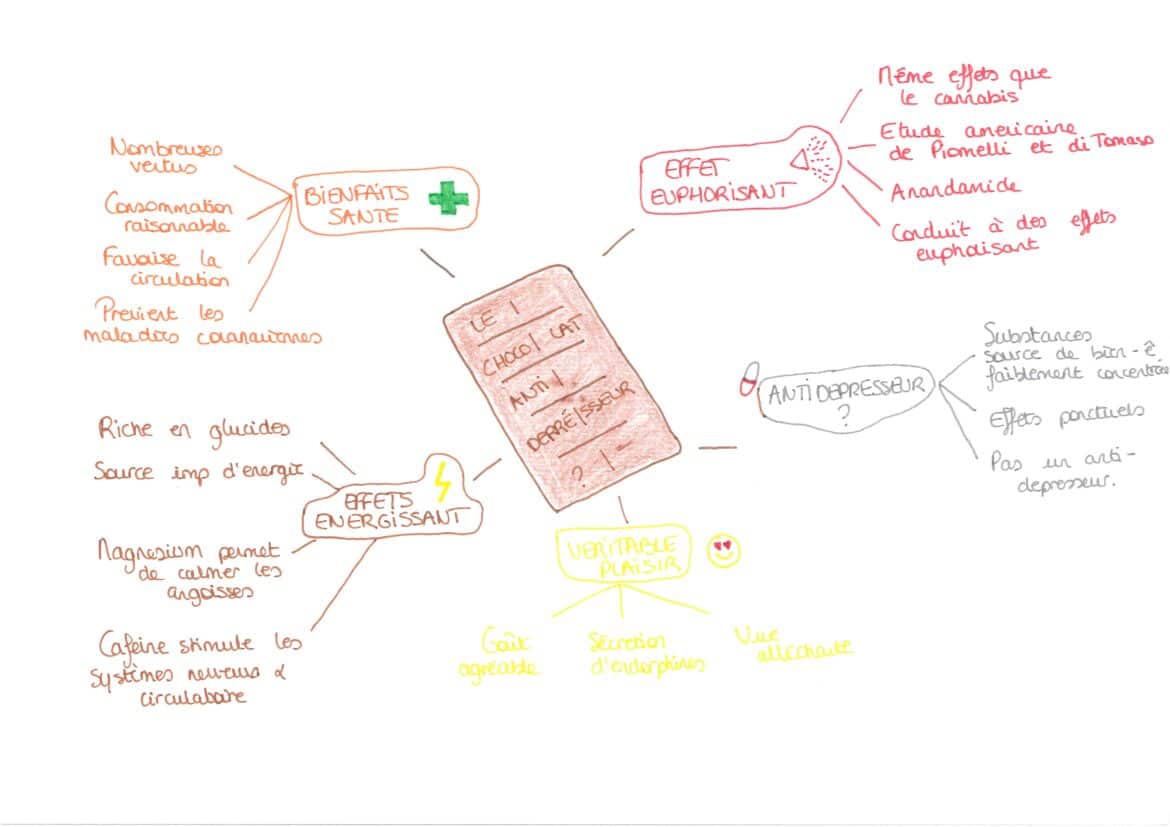 LE
CHOCOLAT
ANTI
DEPRESSEUR
?
BIENFAITS
SANTE
Nombreuses
vertus
Consommation
raisonnable
Favorise la
circulation
Previent les
maladies coronariennes
EFFET
EUPHORISANT
Même effets que
le cannabis
Etude americaine
de Piomelli et di Tomaso
Anandamide
Conduit à des effets
euphorisant
ANTIDEPRESSEUR
?
Substances
source de bien-ê
faiblement concentrées
Effets ponctuels
Pas un anti-
depresseur.
VERITABLE
PLAISIR
Goût
agréable
Sécretion
d'endorphines
Vue
alléchante
EFFETS
ENERGISSANT
Riche en glucides
Source imp d'energie
Magnesium permet
de calmer les
angoisses
Cafeine stimule les
systèmes nerveux &
circulatoire